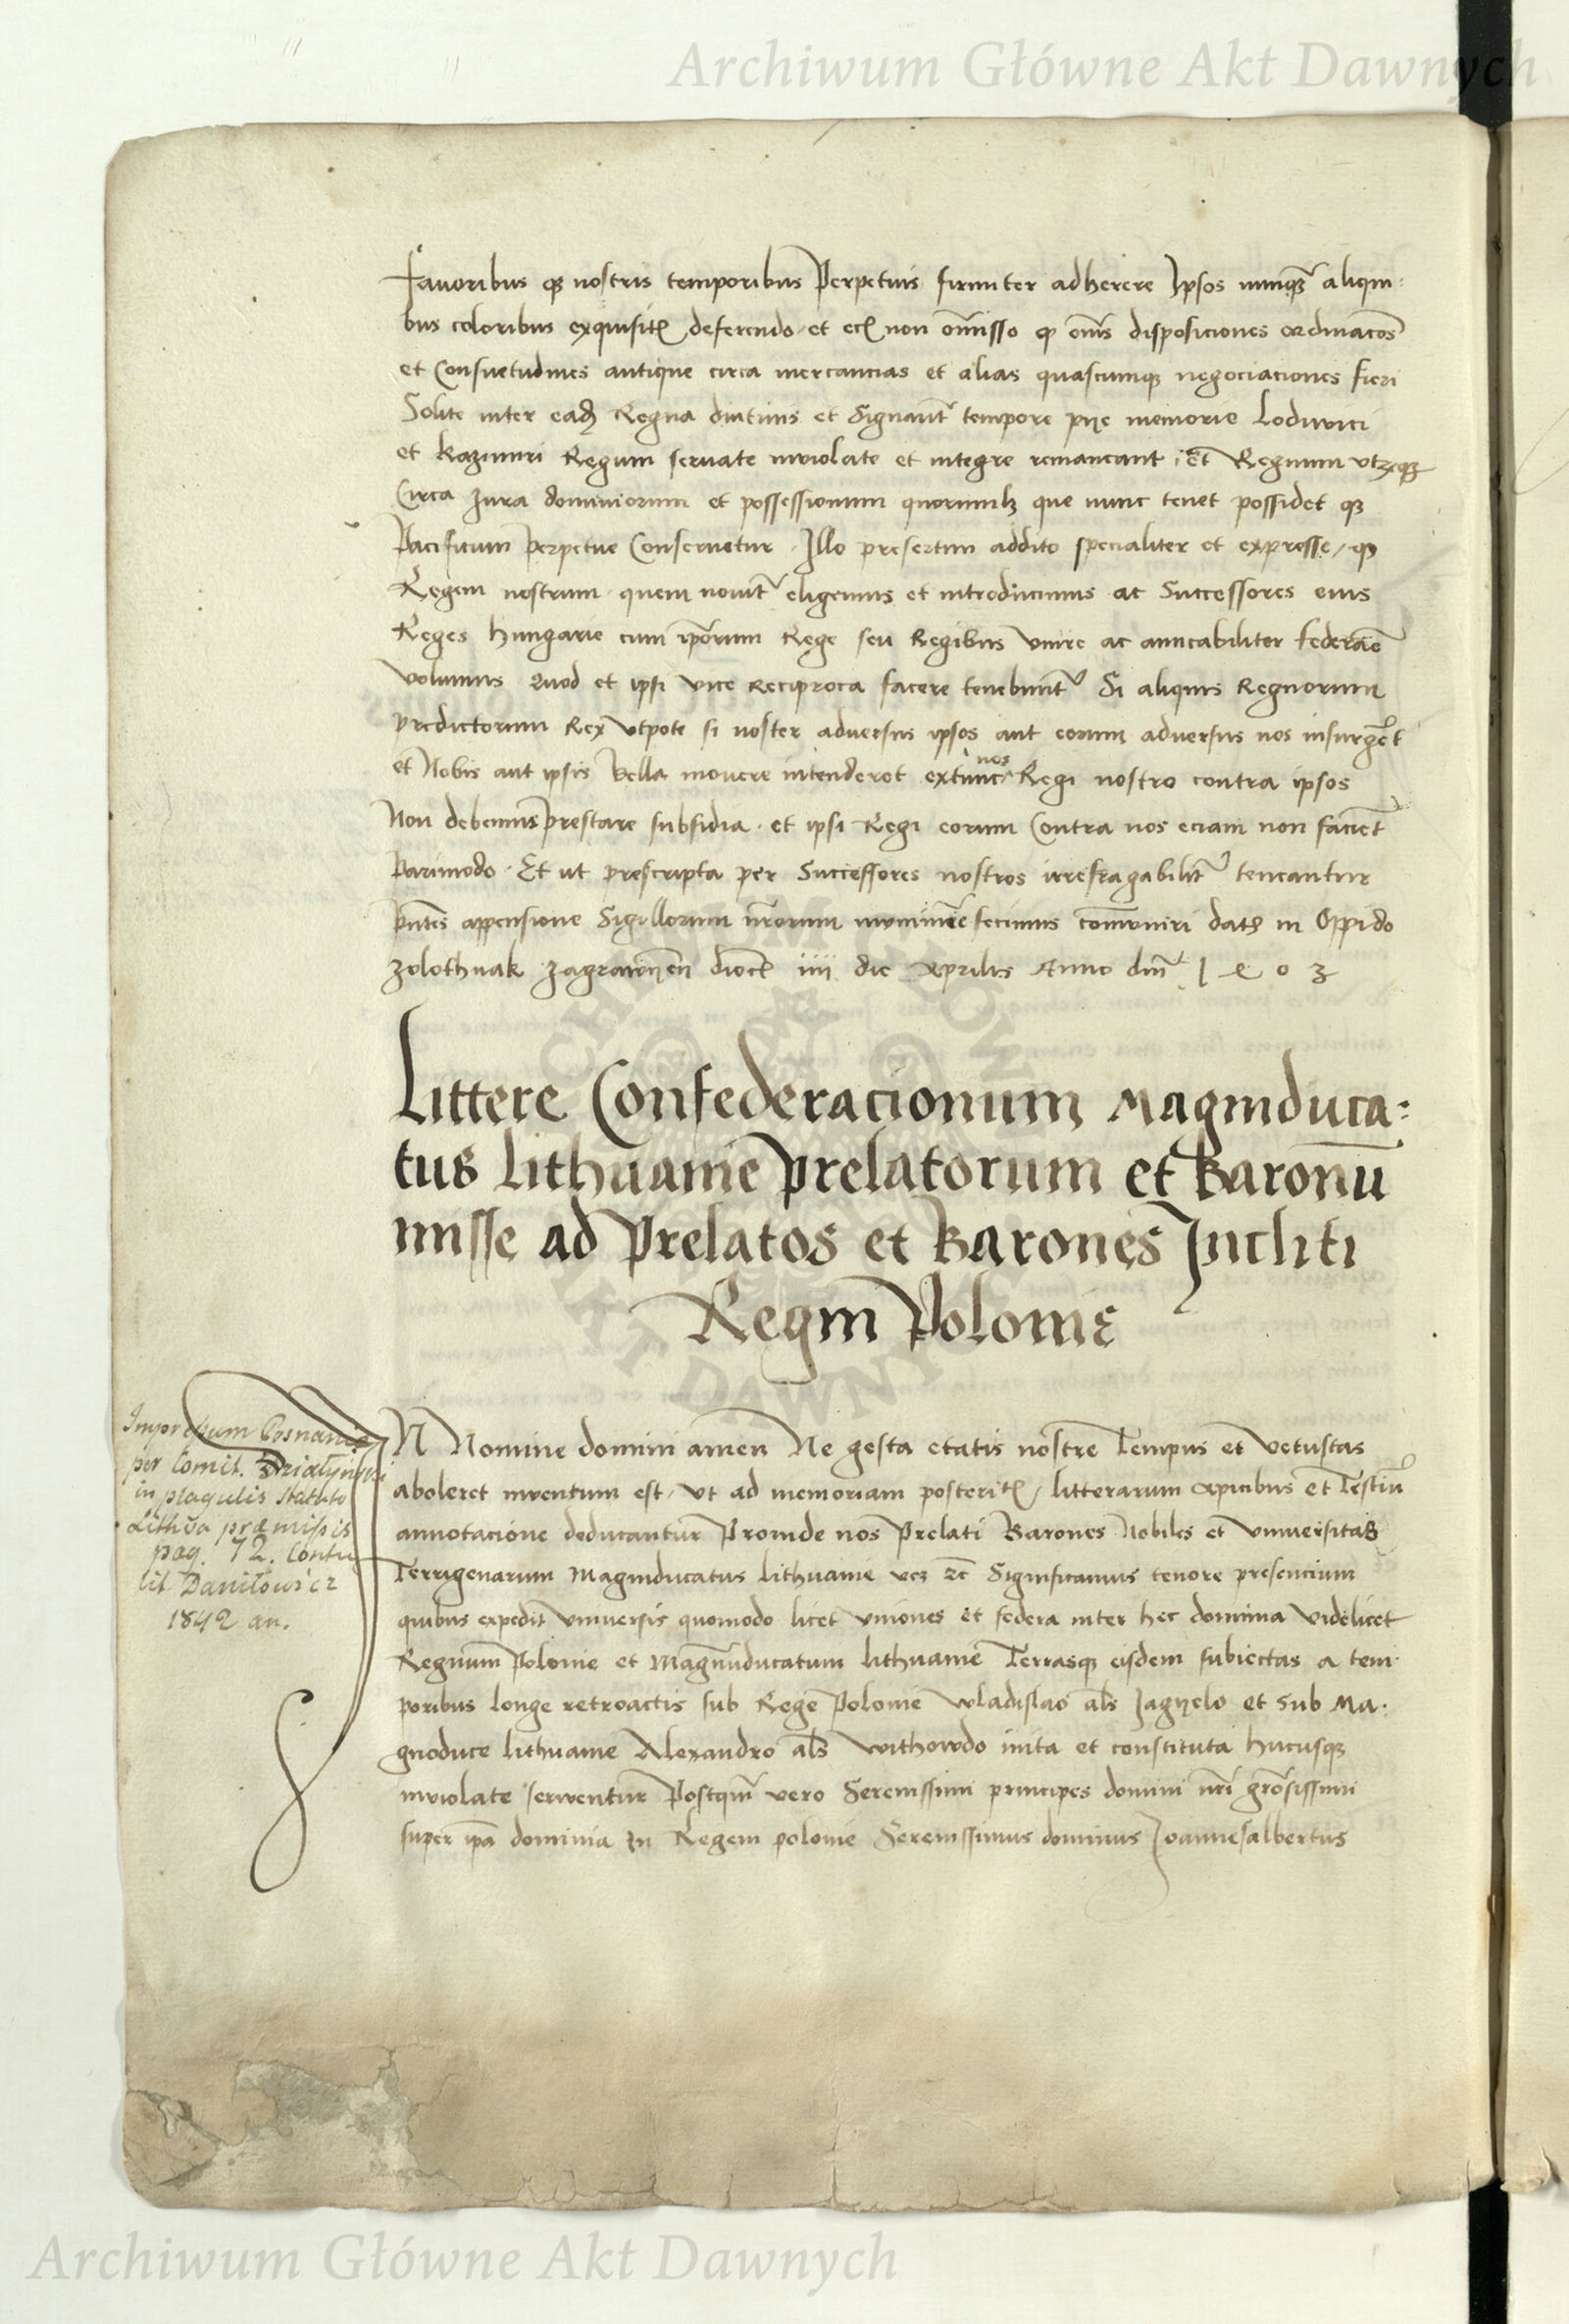 Archiwum Główne Akt Dawnych
Favoribus qȝ nostris temporibus Perpetuis firmiter adherere Ipsos nunqȝ aliqui-
bus coloribus exquisitis deferendo et non omisso qȝ omnes disposiciones ordinacones
et Consuetudines antique circa mercancias et alias quascumqȝ negociaciones fieri
Solite inter eadem Regna diutius et Signanter tempore pije memorie Lodwici
et kazimiri Regum servate inviolate et integre remaneant et Regnum utrumqȝ
Circa Jura dominiorum et possessionum quorumlibet que nunc tenet possidet qȝ
Pacificum Perpetue Conservetur Illo presertim addito specialiter et expresse qȝ
Regem nostrum quem noviter eligemus et introducimus ac Successores eius
Reges Hungarie cum ipsorum Rege seu Regibus unire ac amicabiliter federare
volumus Quod et ipsi vice reciproca facere tenebuntur Si aliquis Regnorum
predictorum Rex utpote si noster adversus ipsos aut eorum adversus nos insurgeret
et Nobis aut ipsis Bella movere intenderet extunc nos Regi nostro contra ipsos
Non debemus prestare subsidia et ipsi Regi eorum Contra nos eciam non facient
Parimodo Et ut prescripta per Successores nostros irrefragabiliter teneantur
pntes appensione Sigillorum nrorum munimine fecimus comuniri datum in Oppido
zolothnak zagrawien dioc iiii die Aprilis Anno dni 1403
Littere Confederacionum Magniduca-
tus Lithuanie prelatorum et Baronu
misse ad Prelatos et Barones Incliti
Regni Polonie
Impressum Posnaniæ
per Comit. Działyński
in plagulis Statuto
Lithva præmissis
pag. 72. Contu
lit Daniłowicz
1842 an.
IN Nomine domini amen Ne gesta etatis nostre Tempus et vetustas
aboleret inventum est ut ad memoriam posteritatis litterarum apicibus et Testium
annotacione deducantur Proinde nos Prelati Barones Nobiles et Universitas
Terrigenarum Magniducatus Lithuanie Significamus tenore presencium
quibus expedit Universis quomodo licet Uniones et federa inter hec dominia videlicet
Regnum Polonie et Magnumducatum lithuanie Terrasqȝ eisdem subiectas a tem-
poribus longe retroactis sub Rege Polonie Wladislao als Jagyelo et sub Ma-
gnoduce lithuanie Alexandro als Withowdo inita et constituta hucusqȝ
inviolate serventur Postquam vero Serenissimi principes domini nri grosissimi
super ipa dominia In Regem polonie Serenissimus dominus Joannesalbertus
Archiwum Główne Akt Dawnych